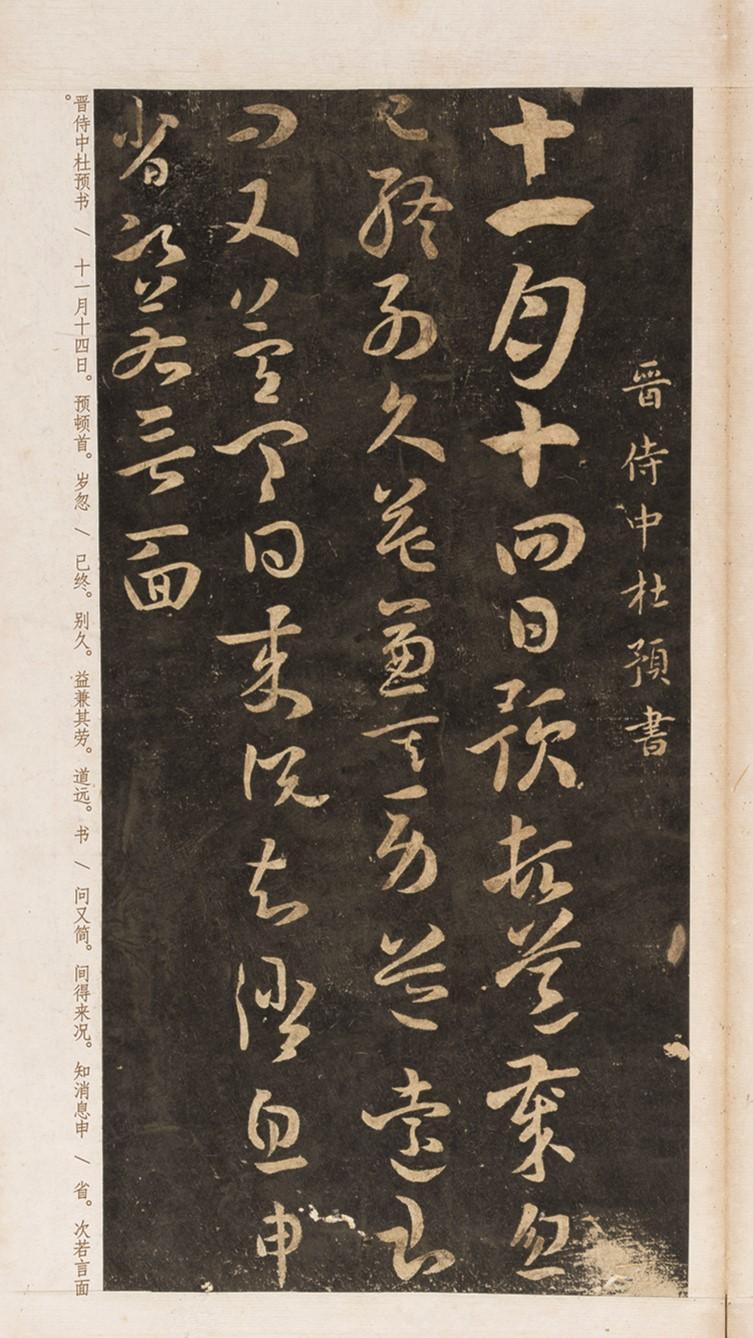 晋侍中杜預書
十一月十四日預頓首歲忽
已終別久益兼其勞道遠書
問又簡間得來況知消息申
省次若言面
晋侍中杜预书 \ 十一月十四日。预顿首。岁忽 \ 已终。别久。益兼其劳。道远。书 \ 问又简。间得来况。知消息申 \ 省。次若言面
。